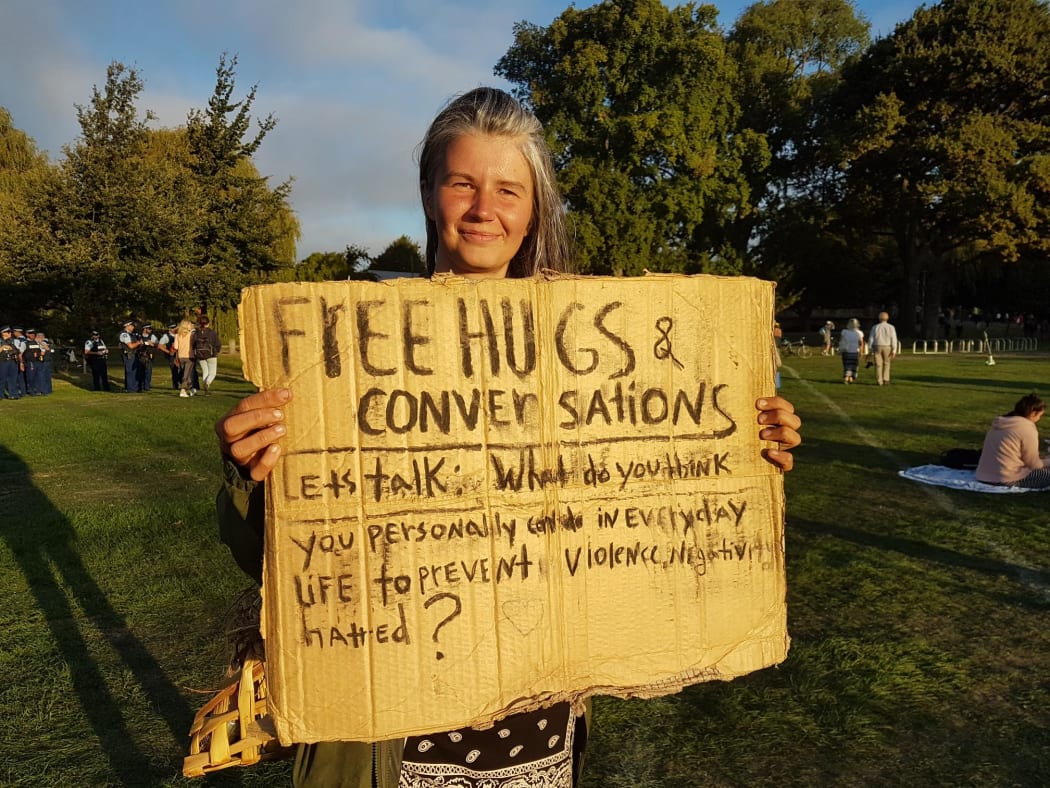 FrEE HUGS &
CONVErSAtiONS
Lets talk: What do you think
you personally can do in everyday
life to prevent violence, negativity
hatred ?